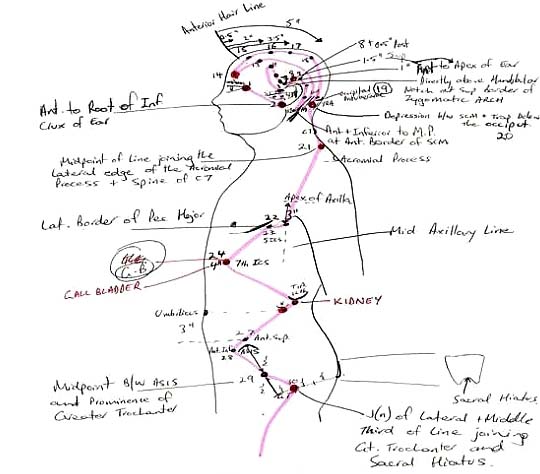 Anterior Hair Line
5"
0.5"
2"
3.5"
15
16
17
18
14
8 → 0.5" Post
1.5"
1"
Ant to Apex of Ear
Directly above Mandibular
Notch at Sup Border of
Zygomatic ARCH
occipital
19
Ant. to Root of Inf
Crux of Ear
Depression b/w SCM + Trap below
the occiput
20
C7
Ant + Inferior to M.P.
at Ant. Border of SCM
21
Acromial Process
Midpoint of line joining the
lateral edge of the Acromial
Process + Spine of C7
Apex of Axilla
3"
Lat. Border of Pec Major
22
23
5ICS
Mid Axillary Line
24
4"
7th ICS
G.B
GALL BLADDER
KIDNEY
Umbilicus
3"
27
Ant. Sup.
Ant. Inf
28
ASIS
Midpoint B/W ASIS
and Prominence of
Greater Trochanter
29
Sacral Hiatus
J(n) of Lateral + Middle
Third of Line joining
Gt. Trochanter and
Sacral Hiatus.